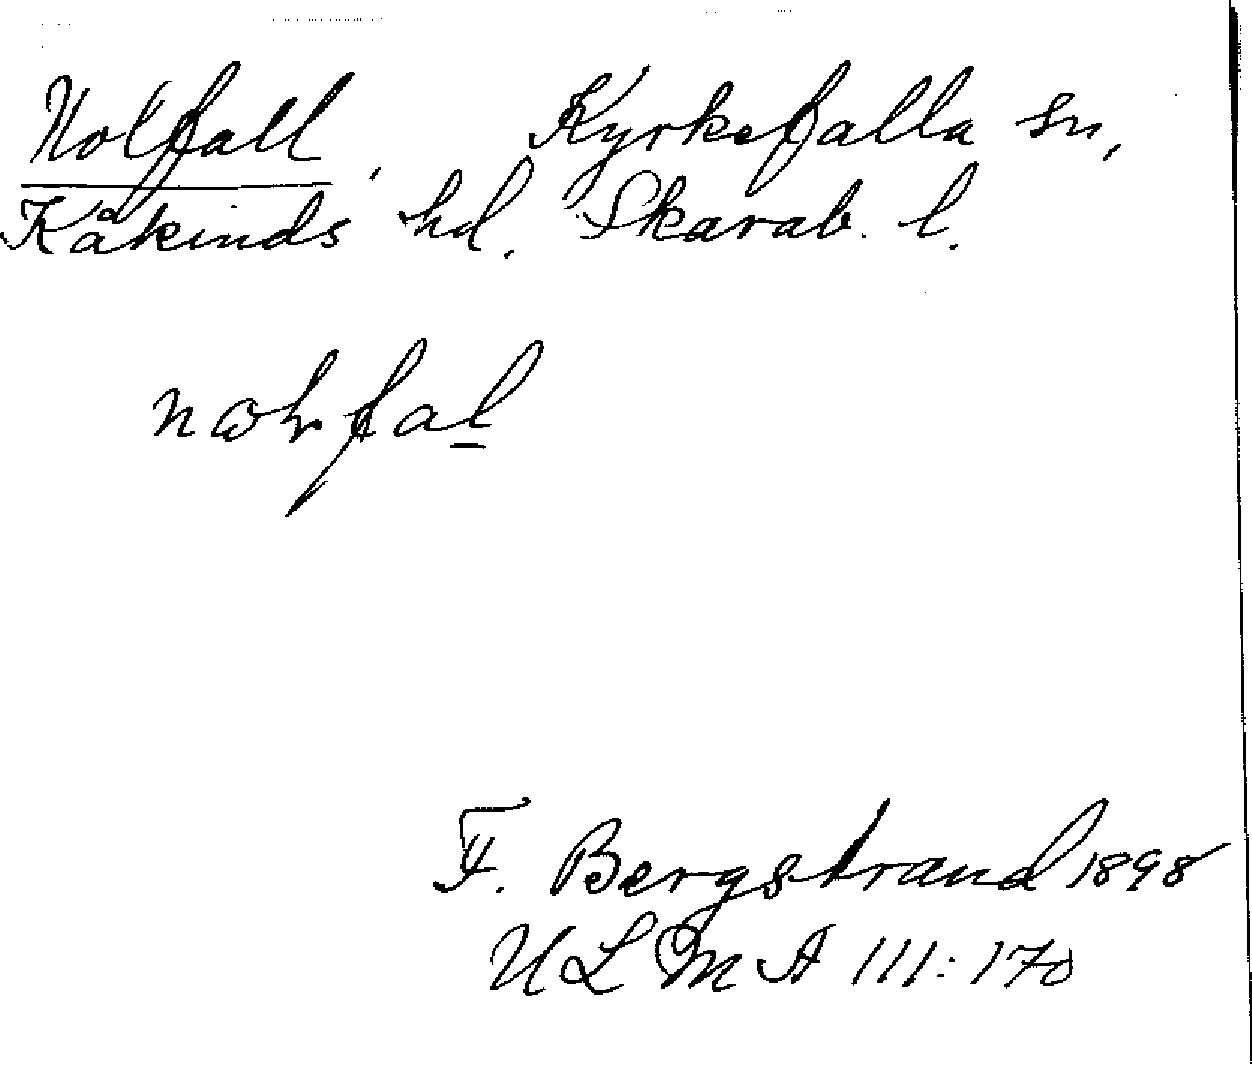 Nolfall, Kyrkefalla sn,
Kåkinds hd. Skarab. l.
fal
F. Bergstrand 1898
ULMA 111:170